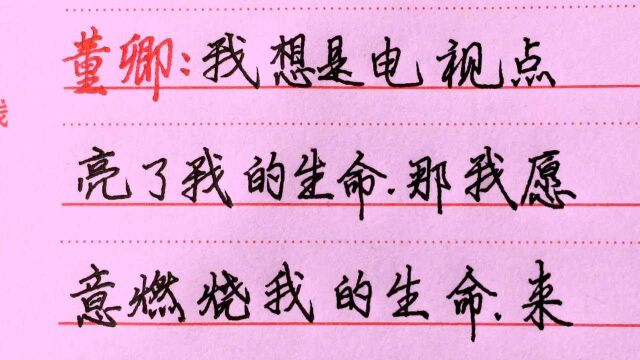 董卿:我想是电视点
亮了我的生命.那我愿
意燃烧我的生命.来